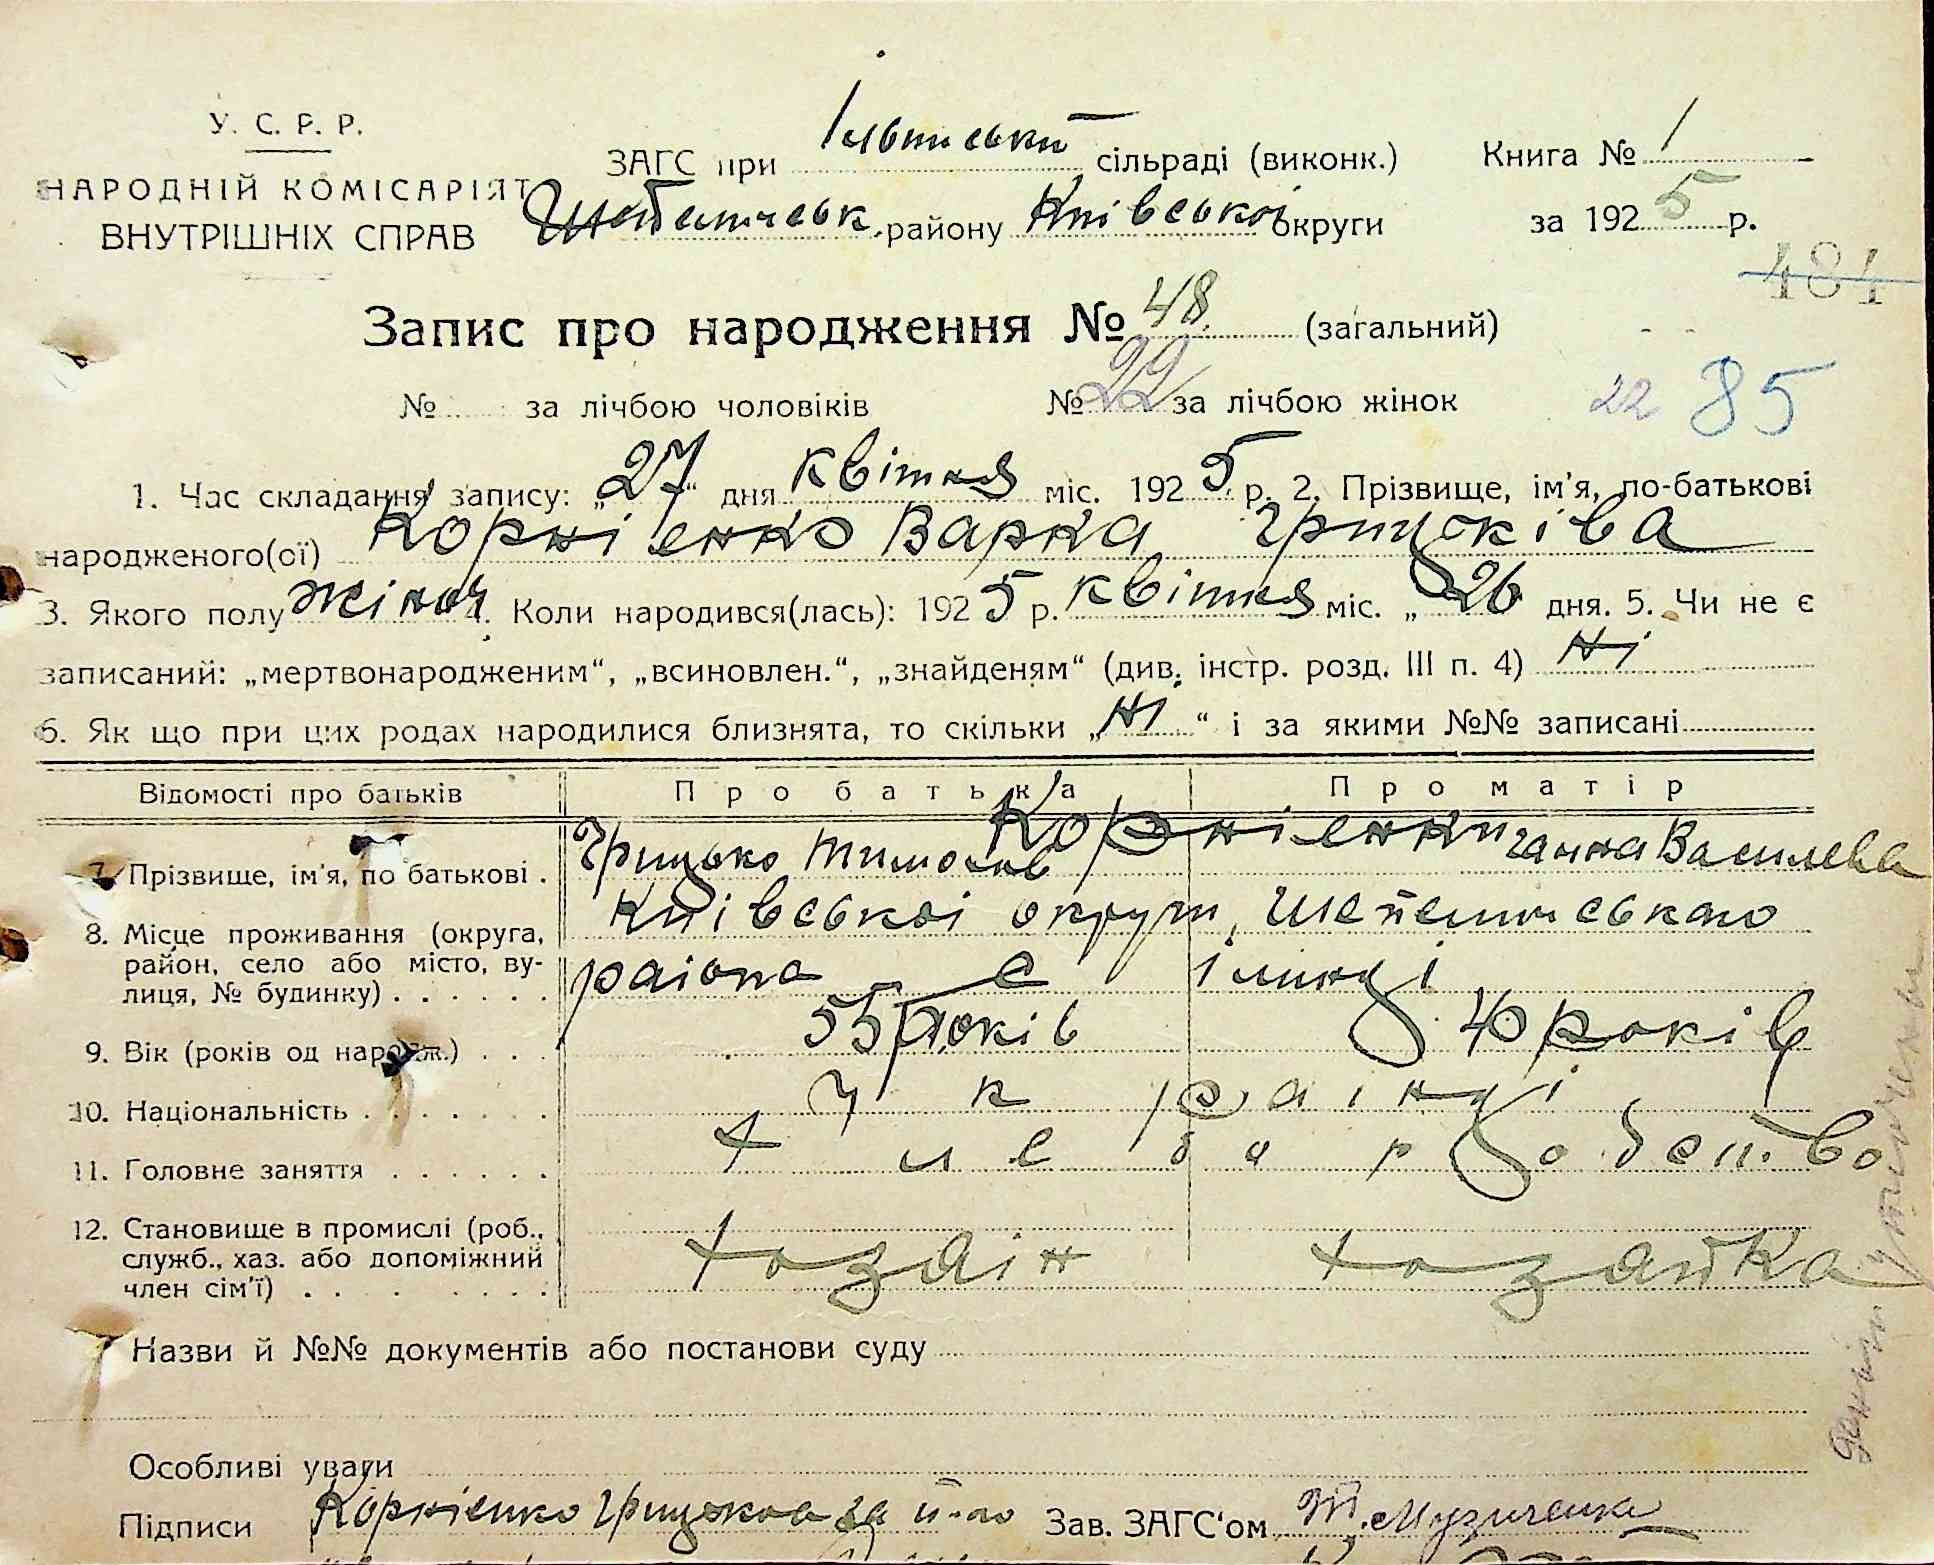 У. С. Р. Р.
НАРОДНІЙ КОМІСАРІЯТ
ВНУТРІШНІХ СПРАВ
ЗАГС при сільраді (виконк.)
району Київської округи
Книга № 1
за 1925 р.
484
Запис про народження № 48 (загальний)
№ за лічбою чоловіків № 22 за лічбою жінок
22 85
1. Час складання запису: „27“ дня квітня міс. 1925 р. 2. Прізвище, ім'я, по-батькові
народженого(ої) Корнієнко Варка Грицьківа
3. Якого полу жіноч 4. Коли народився(лась): 1925 р. квітня міс. „26 дня. 5. Чи не є
записаний: „мертвонародженим“, „всиновлен.“, „знайденям“ (див. інстр. розд. III п. 4) ні
6. Як що при цих родах народилися близнята, то скільки „ні“ і за якими №№ записані
Відомості про батьків Про батька Про матір
Корнієнки
7. Прізвище, ім'я, по батькові . Грицько Тимохів Ганна Василева
8. Місце проживання (округа, район, село або місто, вулиця, № будинку) Київської округи, Шепелицького
раіона с Ілинці
9. Вік (років од нарожд.) 55 років 40 років
10. Національність Украінці
11. Головне заняття Хлебороб
12. Становище в промислі (роб., служб., хаз. або допоміжний член сім'ї) хазаін хазайка
Назви й №№ документів або постанови суду
Особливі уваги
Підписи Корнієнко за Зав. ЗАГС'ом Музиченко